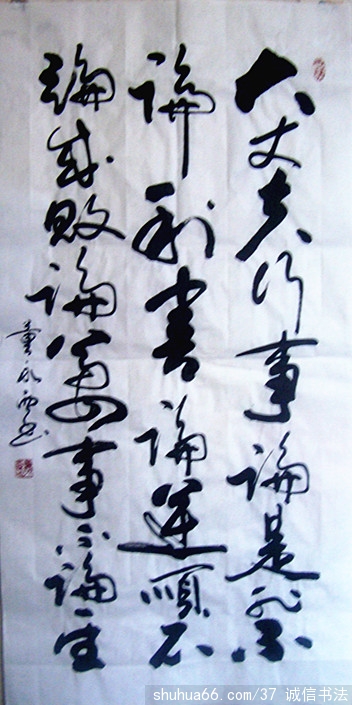 大丈夫行事論是非不
論利害論逆順不
論成敗論萬事不論一生
shuhua66.com/37 诚信书法